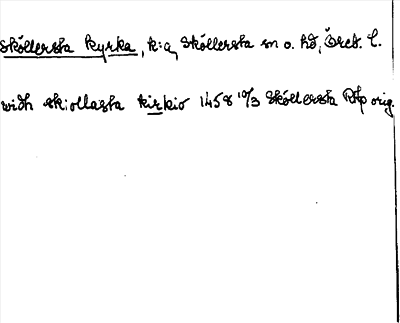 Sköllersta kyrka, k:a, Sköllersta sn o. hd, Öreb. l.
widh skiollasta kirkio 1458 10/3 Sköllersta RAp orig.